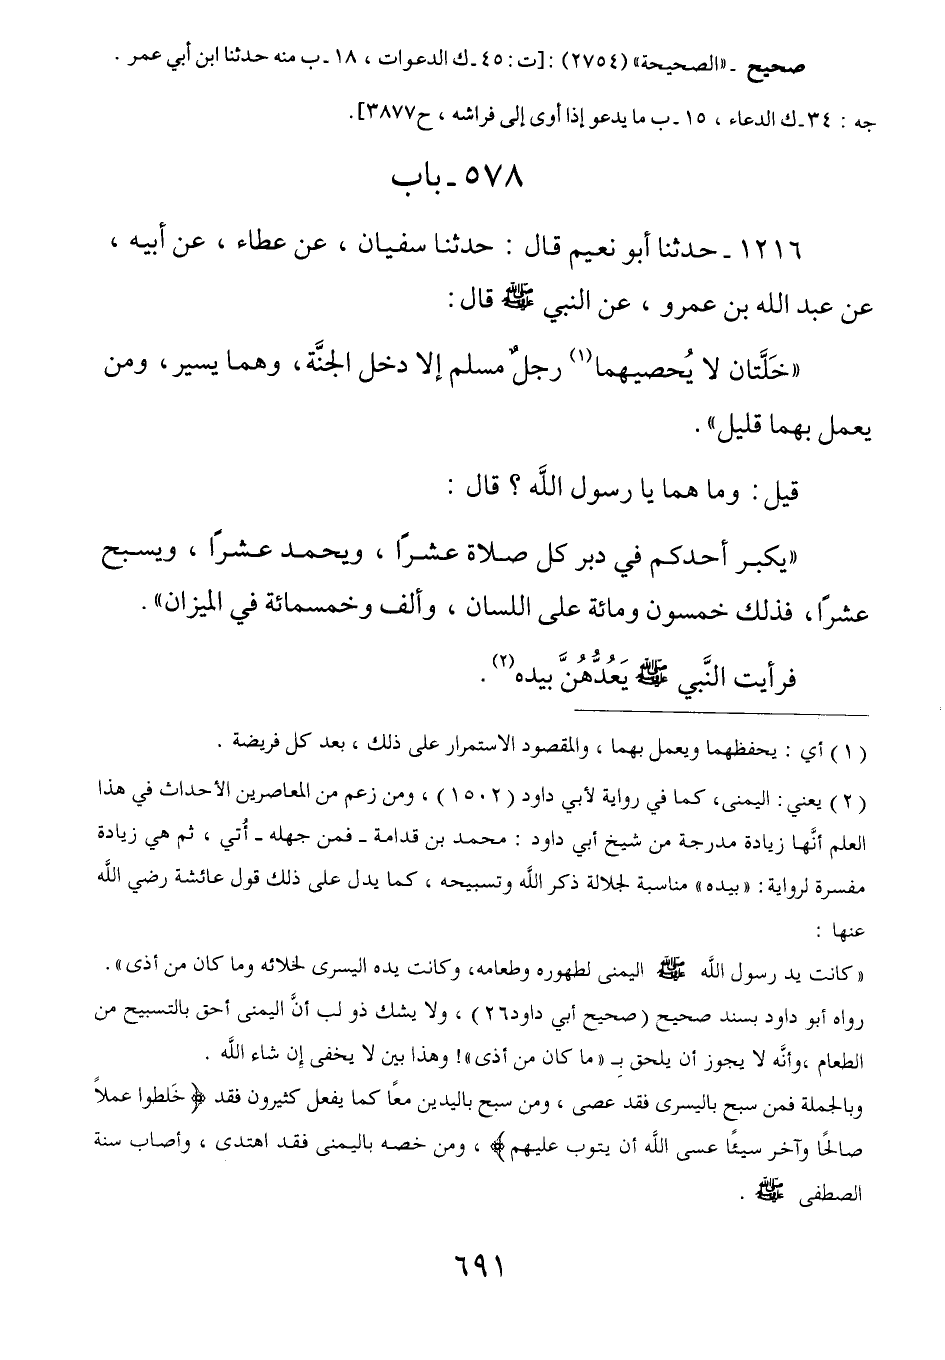 صحيح ـ «الصحيحة» (٢٧٥٤) : [ت : ٤٥ ـ ك الدعوات ، ١٨ ـ ب منه حدثنا ابن أبي عمر .
جه : ٣٤ ـ ك الدعاء ، ١٥ ـ ب ما يدعو إذا أوى إلى فراشه ، ح ٣٨٧٧].
٥٧٨ ـ باب
١٢١٦ ـ حدثنا أبو نعيم قال : حدثنا سفيان ، عن عطاء ، عن أبيه ،
عن عبد الله بن عمرو ، عن النبي ﷺ قال :
«خَلَّتان لا يُحصيهما(١) رجلٌ مسلم إلا دخل الجنَّة، وهما يسير، ومن
يعمل بهما قليل» .
قيل : وما هما يا رسول اللَّه ؟ قال :
«يكبر أحدكم في دبر كل صلاة عشرًا ، ويحمد عشرًا ، ويسبح
عشرًا، فذلك خمسون ومائة على اللسان ، وألف وخمسمائة في الميزان» .
فرأيت النَّبي ﷺ يَعُدُّهُنَّ بيده(٢) .
(١) أي : يحفظهما ويعمل بهما ، والمقصود الاستمرار على ذلك ، بعد كل فريضة .
(٢) يعني : اليمنى، كما في رواية لأبي داود (١٥٠٢) ، ومن زعم من المعاصرين الأحداث في هذا
العلم أنَّها زيادة مدرجة من شيخ أبي داود : محمد بن قدامة ـ فمن جهله ـ أُتي ، ثم هي زيادة
مفسرة لرواية : «بيده» مناسبة لجلالة ذكر اللَّه وتسبيحه ، كما يدل على ذلك قول عائشة رضي اللَّه
عنها :
«كانت يد رسول اللَّه ﷺ اليمنى لطهوره وطعامه، وكانت يده اليسرى لخلائه وما كان من أذى» .
رواه أبو داود بسند صحيح (صحيح أبي داود٢٦) ، ولا يشك ذو لب أنَّ اليمنى أحق بالتسبيح من
الطعام ،وأنَّه لا يجوز أن يلحق بـ «ما كان من أذى»! وهذا بين لا يخفى إن شاء اللَّه .
وبالجملة فمن سبح باليسرى فقد عصى ، ومن سبح باليدين معًا كما يفعل كثيرون فقد ﴿خَلطوا عملاً
صالحًا وآخر سيئًا عسى اللَّه أن يتوب عليهم﴾ ، ومن خصه باليمنى فقد اهتدى ، وأصاب سنة
الصطفى ﷺ .
٦٩١